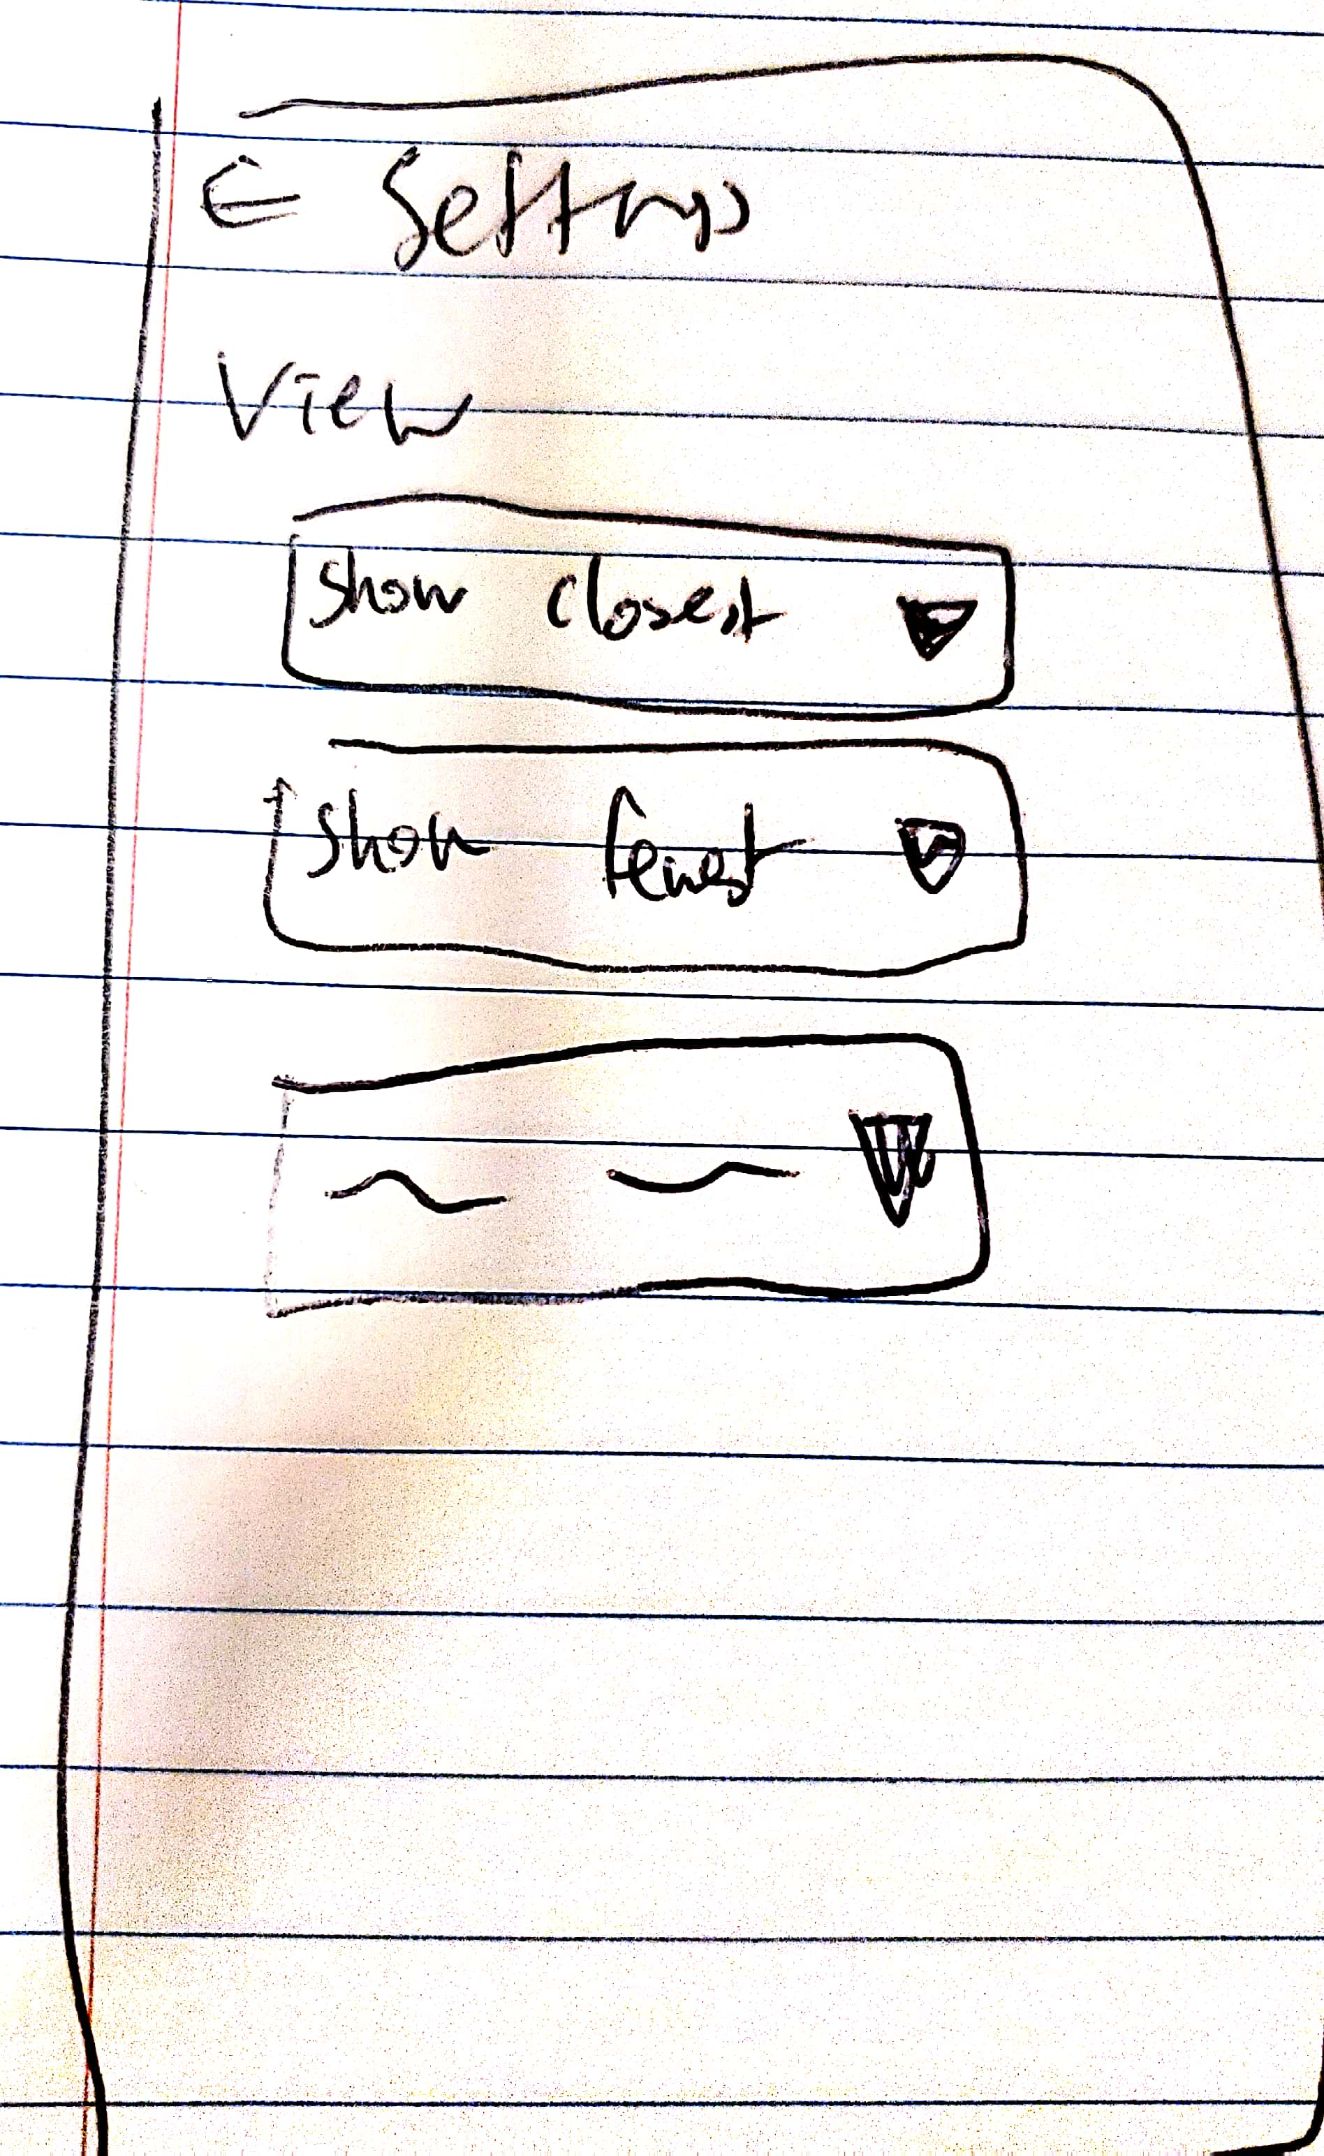 ← Settings
View
Show closest
Show fewest